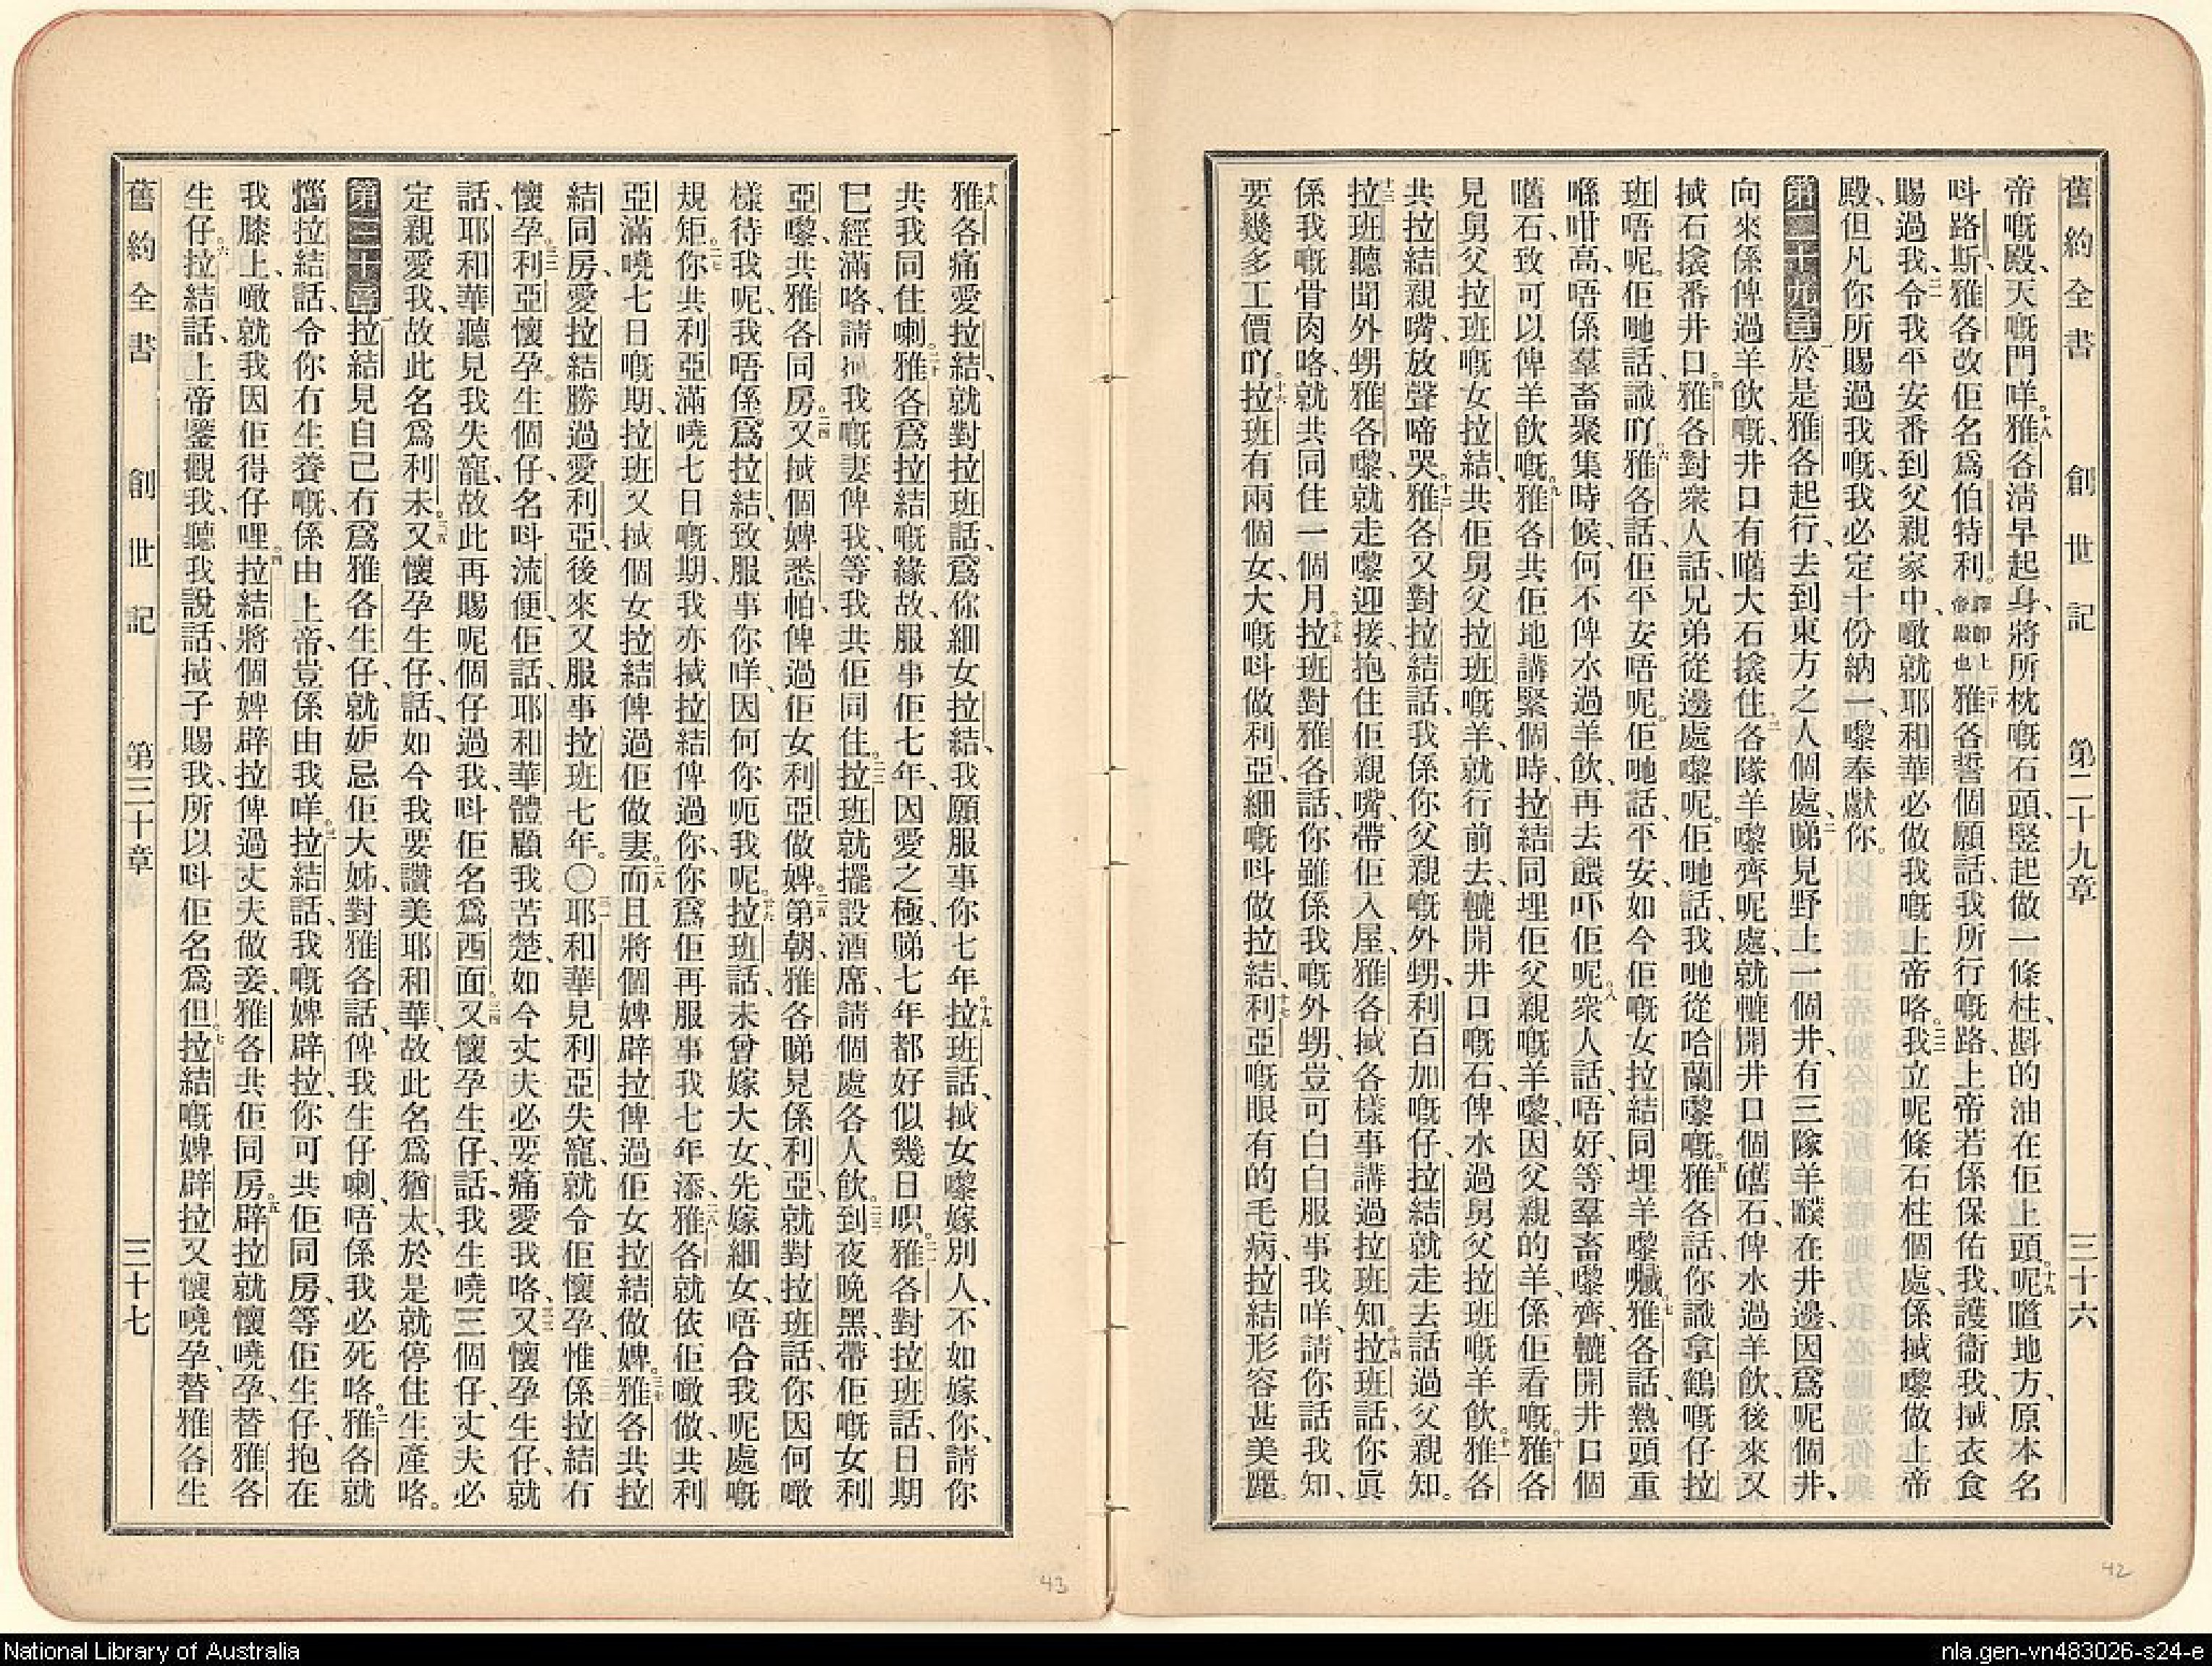 舊約全書　創世記　第二十九章　三十六
帝嘅殿、天嘅門咩。十八雅各淸早起身、將所枕嘅石頭、竪起做一條柱、斟的油在佢上頭。十九呢噎地方、原本名
呌路斯、雅各改佢名爲伯特利。譯卽上帝殿也二十雅各誓個願話、我所行嘅路、上帝若係保佑我、護衞我、㧜衣食
賜過我、二一令我平安番到父親家中、噉就耶和華必做我嘅上帝咯。二二我立呢條石柱個處、係㧜嚟做上帝
殿、但凡你所賜過我嘅、我必定十份納一、嚟奉獻你。
第二十九章 一於是雅各起行、去到東方之人個處、二睇見野上一個井、有三隊羊𪘲在井邊、因爲呢個井、
向來係俾過羊飲嘅、井口有嚿大石揞住、三各隊羊嚟齊呢處、就轆開井口個嚿石、俾水過羊飲、後來又
㧜石揞番井口。四雅各對衆人話、兄弟從邊處嚟呢。佢哋話、我哋從哈蘭嚟嘅。五雅各話、你識拿鶴嘅仔拉
班唔呢。佢哋話、識吖。六雅各話、佢平安唔呢。佢哋話、平安、如今佢嘅女拉結同埋羊嚟囐。七雅各話、熱頭重
喺咁高、唔係羣畜聚集時候、何不俾水過羊飲、再去餵吓佢呢。八衆人話、唔好、等羣畜嚟齊、轆開井口個
嚿石、致可以俾羊飲嘅。九雅各共佢地講緊個時、拉結同埋佢父親嘅羊嚟、因父親的羊、係佢看嘅。十雅各
見舅父拉班嘅女拉結、共佢舅父拉班嘅羊、就行前去、轆開井口嘅石、俾水過舅父拉班嘅羊飲。十一雅各
共拉結親嘴、放聲啼哭。十二雅各又對拉結話、我係你父親嘅外甥、利百加嘅仔、拉結就走去話過父親知。
十三拉班聽聞外甥雅各嚟、就走嚟迎接、抱住佢親嘴、帶佢入屋、雅各㧜各樣事講過拉班知。十四拉班話、你眞
係我嘅骨肉咯、就共同住一個月。十五拉班對雅各話、你雖係我嘅外甥、豈可白白服事我咩、請你話我知、
要幾多工價吖。十六拉班有兩個女、大嘅呌做利亞、細嘅呌做拉結、十七利亞嘅眼有的毛病、拉結形容甚美麗。
十八雅各痛愛拉結、就對拉班話、爲你細女拉結、我願服事你七年。十九拉班話、㧜女嚟嫁別人、不如嫁你、請你
共我同住喇。二十雅各爲拉結嘅緣故、服事佢七年、因愛之極、睇七年都好似幾日啫。二一雅各對拉班話、日期
已經滿咯、請㧜我嘅妻俾我、等我共佢同住。二二拉班就擺設酒席、請個處各人飲。二三到夜晚黑、帶佢嘅女利
亞嚟、共雅各同房。二四又㧜個婢悉帕、俾過佢女利亞做婢。二五第朝、雅各睇見係利亞、就對拉班話、你因何噉
樣待我呢、我唔係爲拉結、致服事你咩、因何你呃我呢。二六拉班話、未曾嫁大女、先嫁細女、唔合我呢處嘅
規矩。二七你共利亞滿嘵七日嘅期、我亦㧜拉結俾過你、你爲佢再服事我七年添。二八雅各就依佢噉做、共利
亞滿嘵七日嘅期、拉班又㧜個女拉結俾過佢做妻。二九而且將個婢辟拉俾過佢女拉結做婢。三十雅各共拉
結同房、愛拉結勝過愛利亞、後來又服事拉班七年。〇三一耶和華見利亞失寵、就令佢懷孕、惟係拉結有
懷孕。三二利亞懷孕。生個仔、名呌流便、佢話、耶和華體顧我苦楚、如今丈夫必要痛愛我咯、三三又懷孕生仔、就
話、耶和華聽見我失寵、故此再賜呢個仔過我、呌佢名爲西面。三四又懷孕生仔、話、我生嘵三個仔、丈夫必
定親愛我、故此名爲利未。三五又懷孕生仔、話、如今我要讚美耶和華、故此名爲猶大、於是就停住生產咯。
第三十章 一拉結見自己冇爲雅各生仔、就妒忌佢大姊、對雅各話、俾我生仔喇、唔係我必死咯。二雅各就
惱拉結話、令你冇生養嘅、係由上帝、豈係由我咩。三拉結話、我嘅婢辟拉、你可共佢同房、等佢生仔、抱在
我膝上、噉就我因佢得仔哩。四拉結將個婢辟拉俾過丈夫做妾、雅各共佢同房。五辟拉就懷嘵孕、替雅各
生仔。六拉結話、上帝鑒觀我、聽我說話、㧜子賜我、所以呌佢名爲但。七拉結嘅婢辟拉又懷嘵孕、替雅各生
舊約全書　創世記　第三十章　三十七
43
42
National Library of Australia
nla.gen-vn483026-s24-e